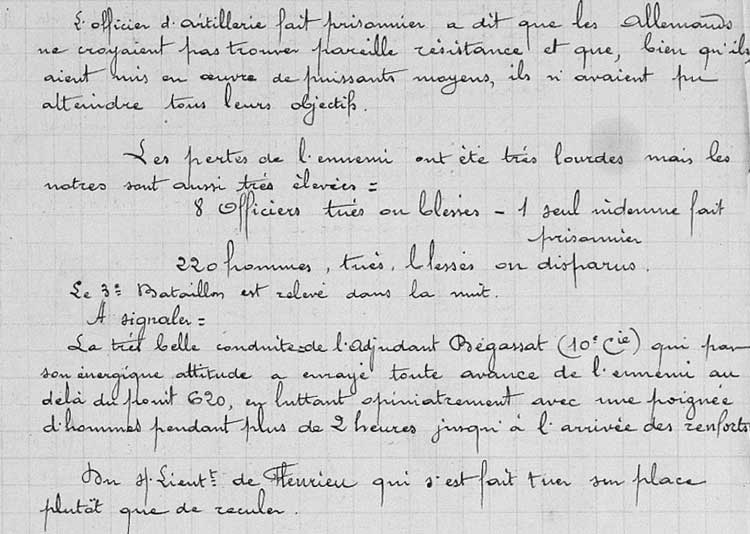 L'officier d'artillerie fait prisonnier a dit que les Allemands
ne croyaient pas trouver pareille résistance et que, bien qu'ils
aient mis en œuvre de puissants moyens, ils n'avaient pu
atteindre tous leurs objectifs.
Les pertes de l'ennemi ont été très lourdes mais les
notres sont aussi très élevées =
8 Officiers tués ou blessés - 1 seul indemne fait
prisonnier
220 hommes, tués, blessés ou disparus.
Le 3e Bataillon est relevé dans la nuit.
A signaler =
La très belle conduite de l'Adjudant Bégassat (10e Cie) qui par
son énergique attitude a enrayé toute avance de l'ennemi au
delà du point 620, en luttant opiniatrement avec une poignée
d'hommes pendant plus de 2 heures jusqu'à l'arrivée des renforts
Du s/Lieutt de Fleurieu qui s'est fait tuer sur place
plutôt que de reculer.